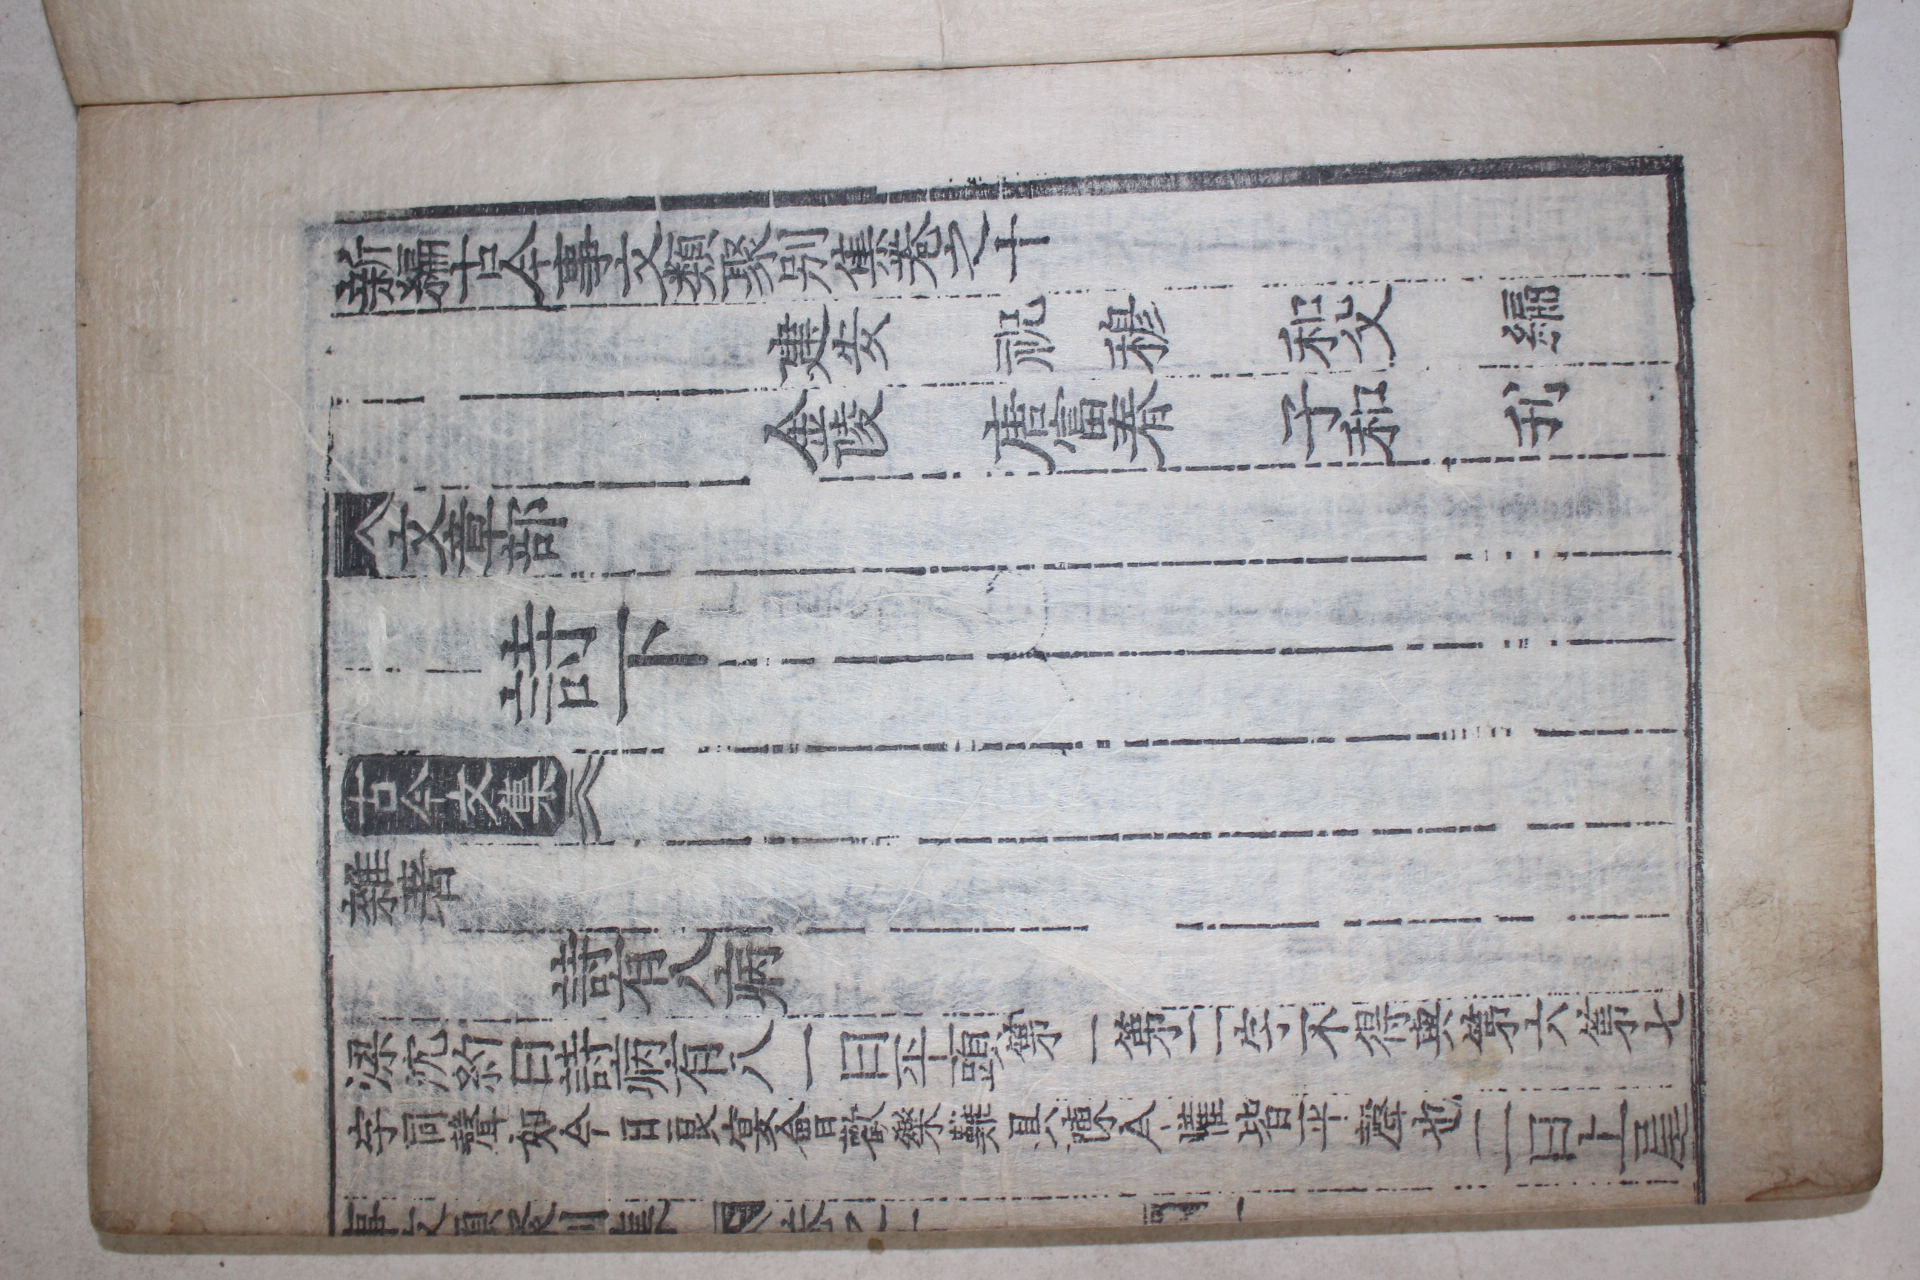 新編古今事文類聚别集卷之十
建安 祝 穆 和父 編
金陵 唐富春 子和 刋
文章部
詩下
古今文集
雜著
詩有八病
梁沈約曰詩病有八一曰平頭第一第二字不得與第六第七
字同聲如今日良宴會歡樂難具陳今懽皆平聲也二曰上尾
事文類聚别集 卷之十 一